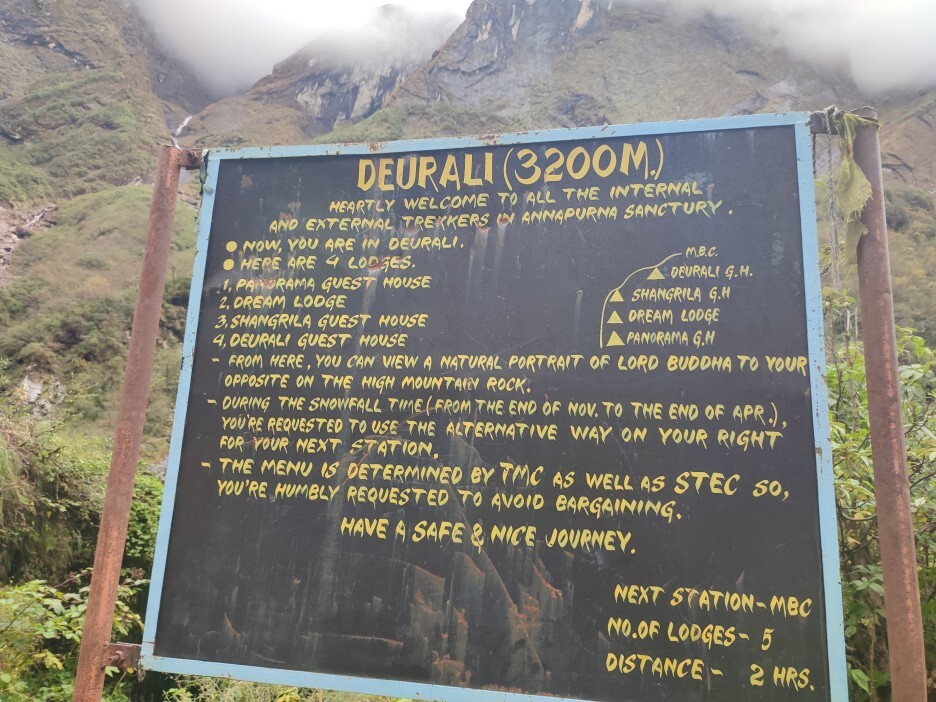 DEURALI (3200M.)
HEARTLY WELCOME TO ALL THE INTERNAL
AND EXTERNAL TREKKERS IN ANNAPURNA SANCTURY.
● NOW, YOU ARE IN DEURALI.
● HERE ARE 4 LODGES.
1, PANORAMA GUEST HOUSE
2, DREAM LODGE
3, SHANGRILA GUEST HOUSE
4, DEURALI GUEST HOUSE
M.B.C.
DEURALI G.H.
SHANGRILA G.H
DREAM LODGE
PANORAMA G.H
- FROM HERE, YOU CAN VIEW A NATURAL PORTRAIT OF LORD BUDDHA TO YOUR
OPPOSITE ON THE HIGH MOUNTAIN ROCK.
- DURING THE SNOWFALL TIME (FROM THE END OF NOV. TO THE END OF APR.),
YOU'RE REQUESTED TO USE THE ALTERNATIVE WAY ON YOUR RIGHT
FOR YOUR NEXT STATION.
- THE MENU IS DETERMINED BY TMC AS WELL AS STEC SO,
YOU'RE HUMBLY REQUESTED TO AVOID BARGAINING.
HAVE A SAFE & NICE JOURNEY.
NEXT STATION - MBC
NO. OF LODGES - 5
DISTANCE - 2 HRS.